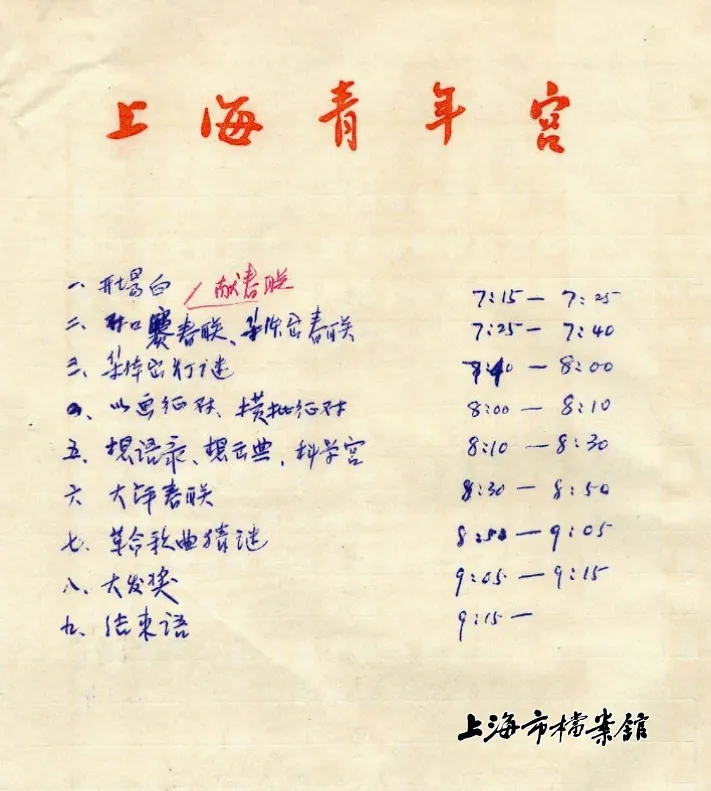 上海青年宫
一、开场白 献春联 7:15 — 7:25
二、对口赛春联、集体出春联 7:25 — 7:40
三、集体出灯谜 7:40 — 8:00
四、以画征对、横批征对 8:00 — 8:10
五、想语录、想古典、科学宫 8:10 — 8:30
六 大评春联 8:30 — 8:50
七、革命歌曲猜谜 8:50 — 9:05
八、大发奖 9:05 — 9:15
九、结束语 9:15 —
上海市檔案館